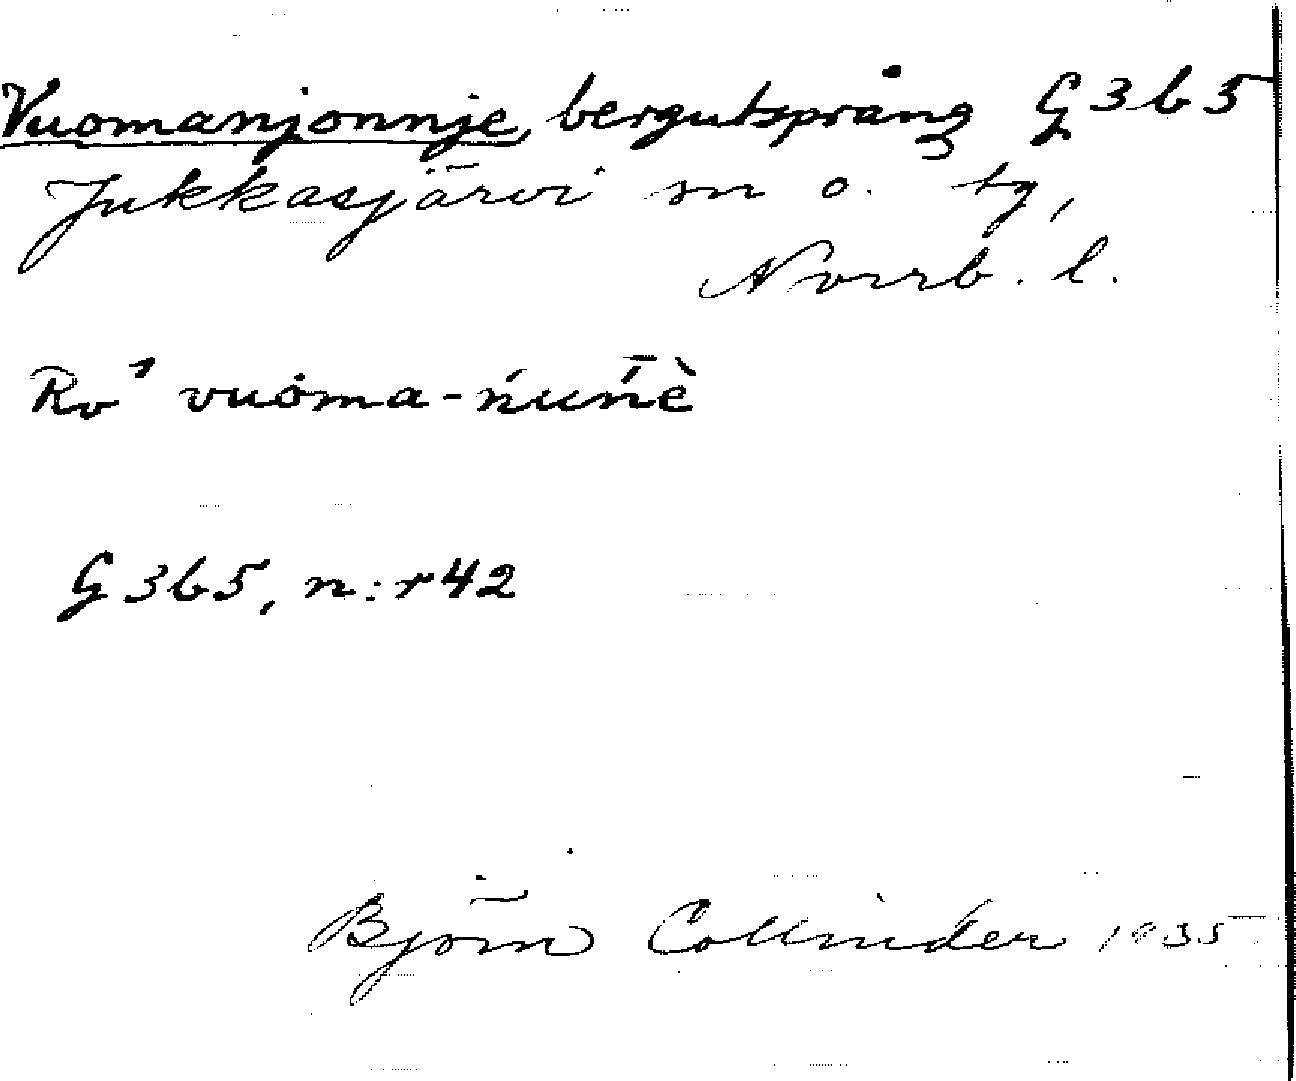 Vuomanjonnje, bergutsprång G 3 b 5
Jukkasjärvi sn o. tg,
Norrb. l.
Rv¹ vuȯma-ńuńè
G 3 b 5, n:r 42
Björn Collinder 1935